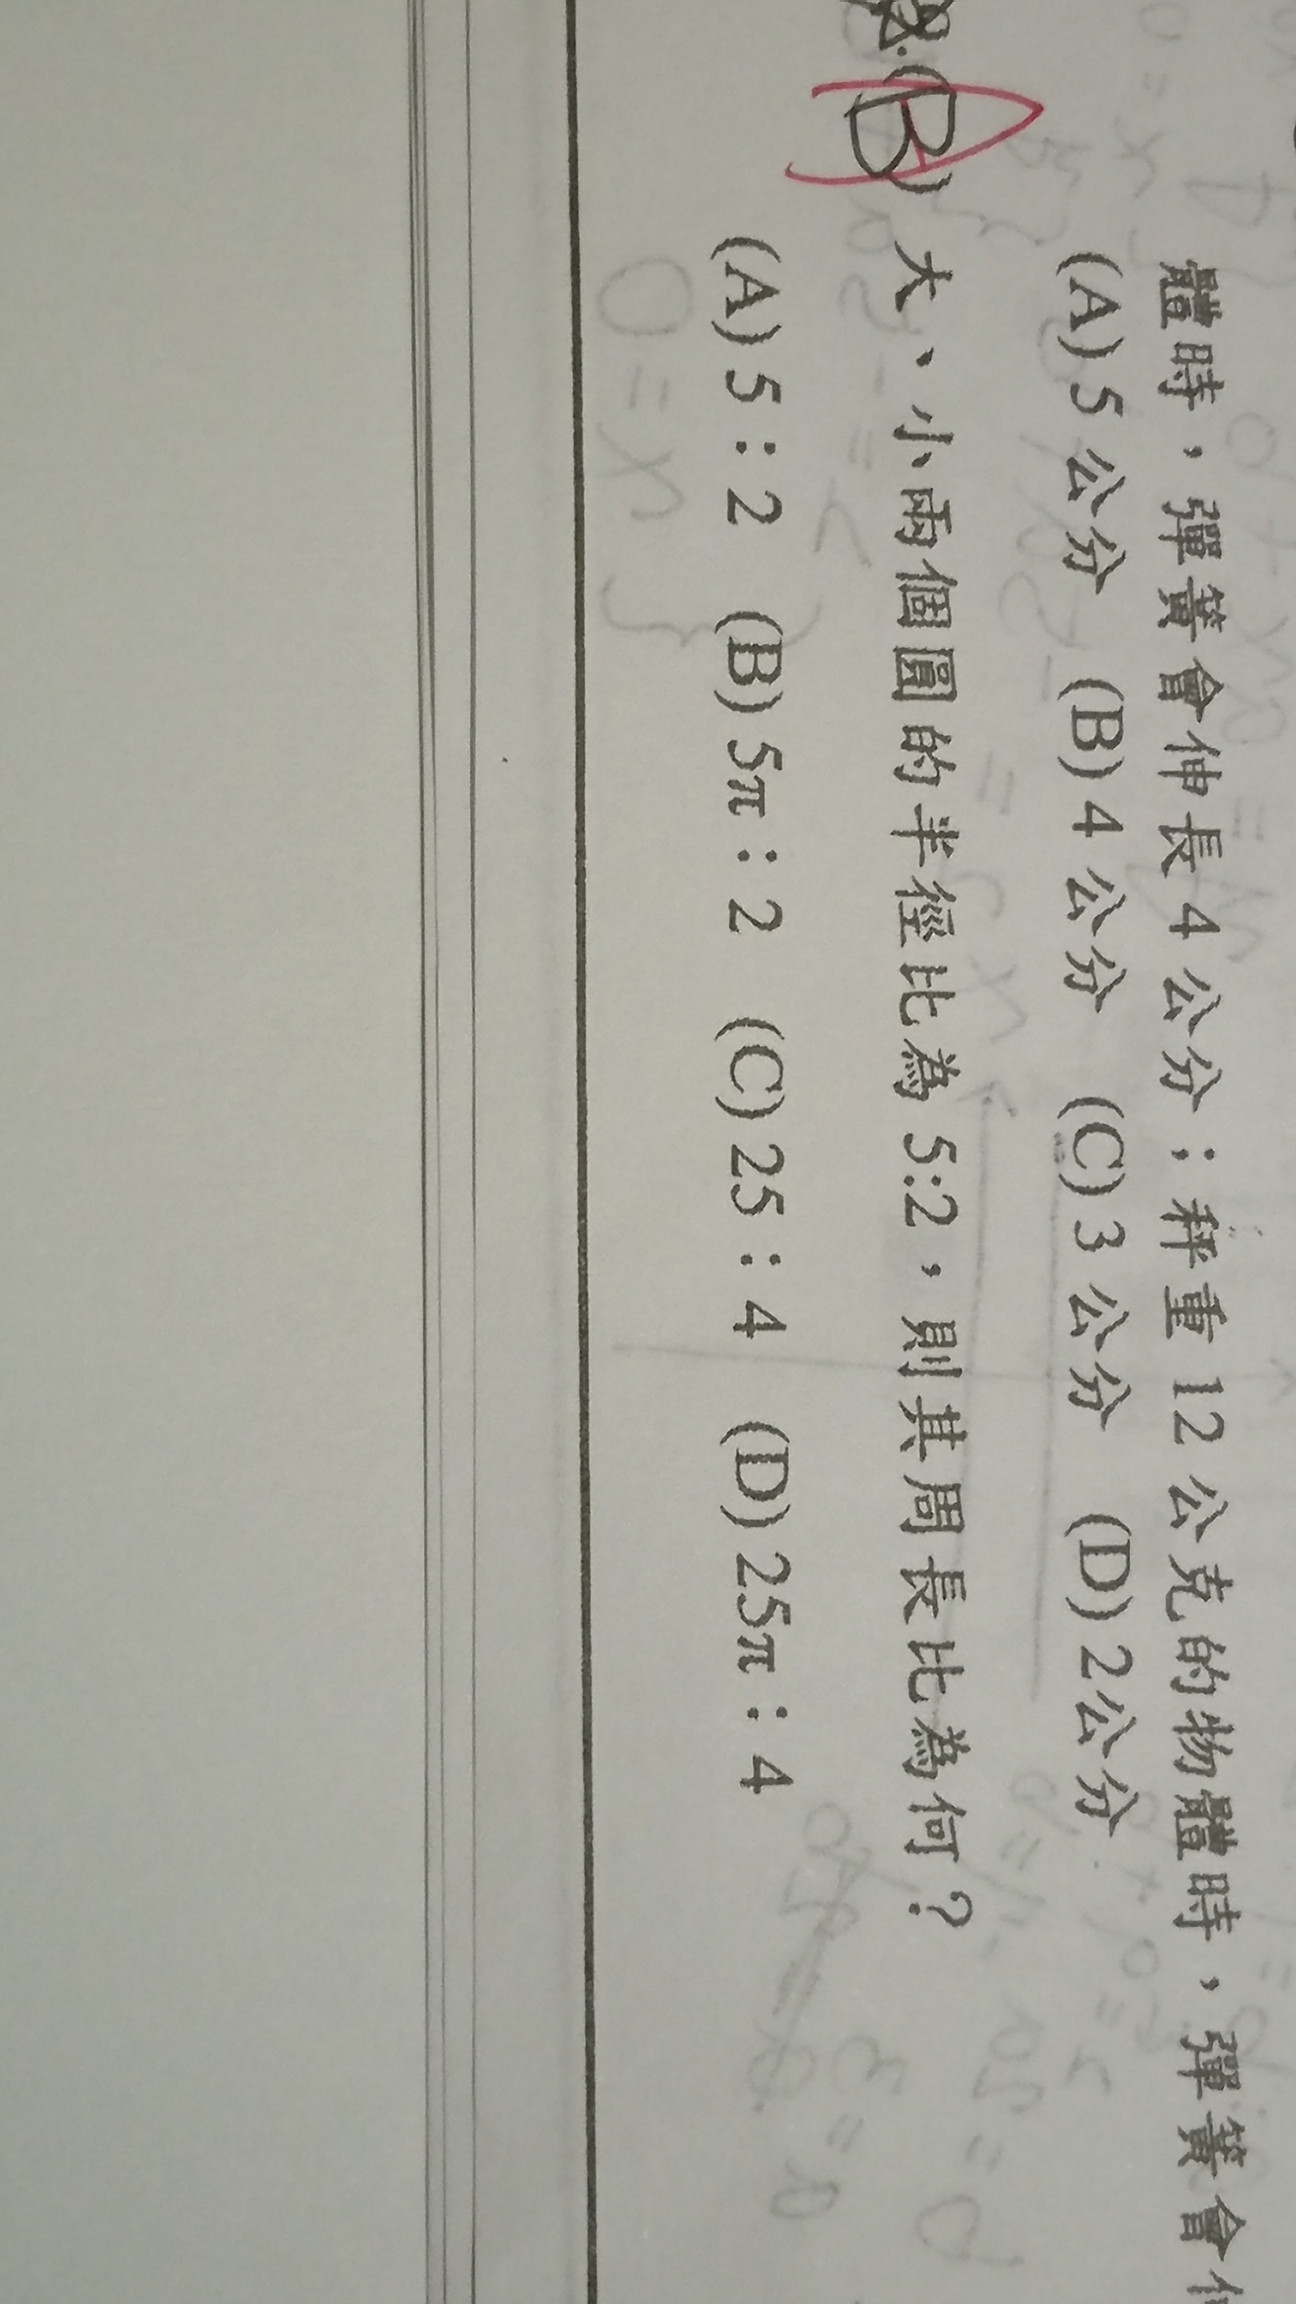 體時，彈簧會伸長 4 公分；秤重 12 公克的物體時，彈簧會
(A) 5 公分 (B) 4 公分 (C) 3 公分 (D) 2公分
(B) 大、小兩個圓的半徑比為 5:2，則其周長比為何？
(A) 5：2 (B) 5π：2 (C) 25：4 (D) 25π：4